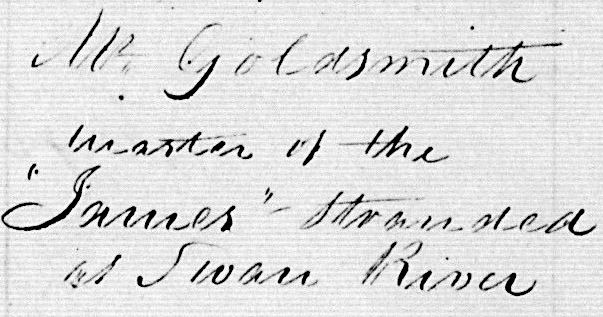 Mr. Goldsmith
master of the
"James" - stranded
at Swan River